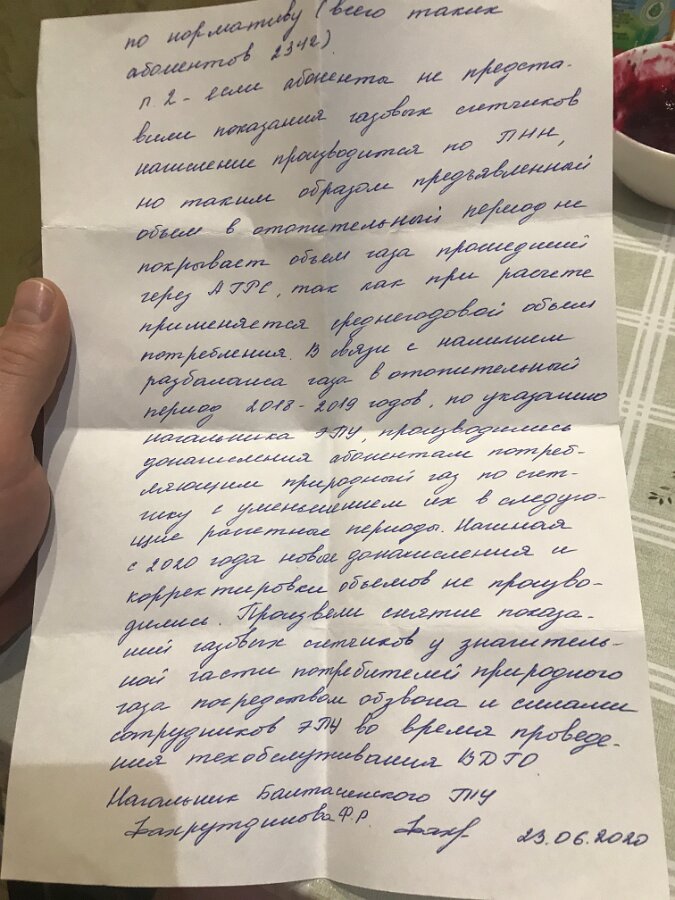 по нормативу (всего таких
абонентов 2342)
п. 2 - если абоненты не предста-
вили показания газовых счетчиков
начисление производится по ПНН,
но таким образом предъявленный
объем в отопительный период не
покрывает объем газа прошедший
через АГРС, так как при расчете
применяется среднегодовой объем
потребления. В связи с наличием
разбаланса газа в отопительный
период 2018-2019 годов, по указанию
начальника ЭПУ, производились
доначисления абонентам потреб-
ляющим природный газ по счет-
чику с уменьшением их в следую-
щие расчетные периоды. Начиная
с 2020 года новые доначисления и
корректировки объемов не произво-
дились. Произвели снятие показа-
ний газовых счетчиков у значитель-
ной части потребителей природного
газа посредством обзвона и силами
сотрудников ЭПУ во время проведе-
ния техобслуживания ВДГО
Начальник Балтачевского ГПУ
Бахрутдинова Ф.Р. Бахр 23.06.2020